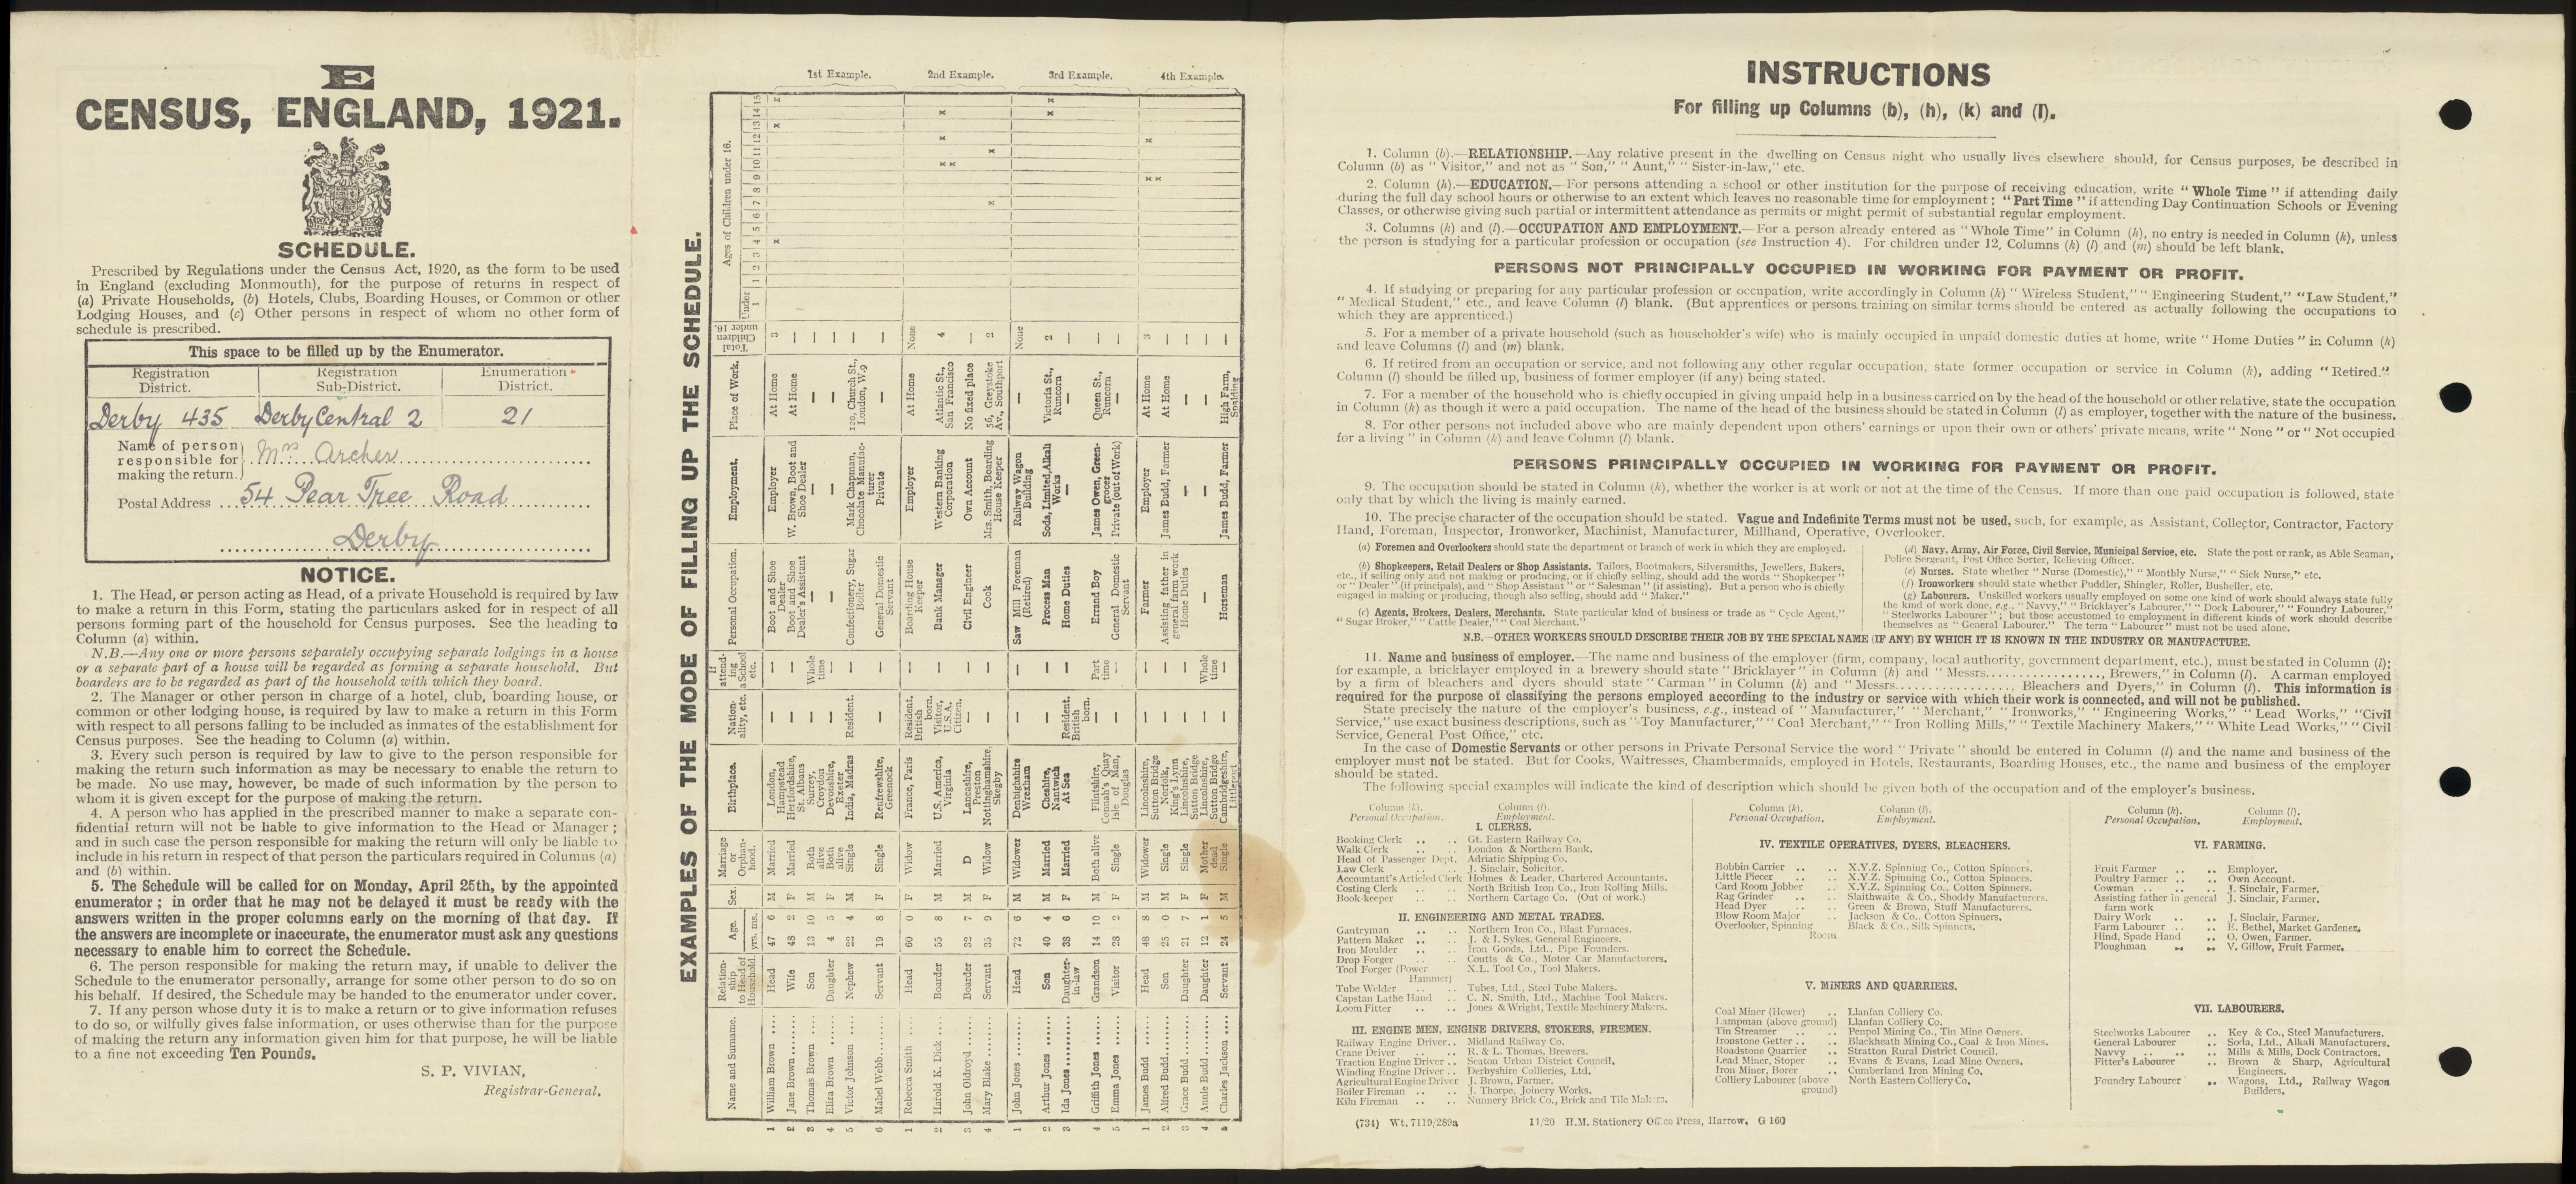 E
CENSUS, ENGLAND, 1921.
SCHEDULE.
Prescribed by Regulations under the Census Act, 1920, as the form to be used
in England (excluding Monmouth), for the purpose of returns in respect of
(a) Private Households, (b) Hotels, Clubs, Boarding Houses, or Common or other
Lodging Houses, and (c) Other persons in respect of whom no other form of
schedule is prescribed.
This space to be filled up by the Enumerator.
Registration District. Registration Sub-District. Enumeration District.
Derby 435 Derby Central 2 21
Name of person responsible for making the return. Mrs. Archer
Postal Address 54 Pear Tree Road
Derby
NOTICE.
1. The Head, or person acting as Head, of a private Household is required by law
to make a return in this Form, stating the particulars asked for in respect of all
persons forming part of the household for Census purposes. See the heading to
Column (a) within.
N.B.—Any one or more persons separately occupying separate lodgings in a house
or a separate part of a house will be regarded as forming a separate household. But
boarders are to be regarded as part of the household with which they board.
2. The Manager or other person in charge of a hotel, club, boarding house, or
common or other lodging house, is required by law to make a return in this Form
with respect to all persons falling to be included as inmates of the establishment for
Census purposes. See the heading to Column (a) within.
3. Every such person is required by law to give to the person responsible for
making the return such information as may be necessary to enable the return to
be made. No use may, however, be made of such information by the person to
whom it is given except for the purpose of making the return.
4. A person who has applied in the prescribed manner to make a separate con-
fidential return will not be liable to give information to the Head or Manager;
and in such case the person responsible for making the return will only be liable to
include in his return in respect of that person the particulars required in Columns (a)
and (b) within.
5. The Schedule will be called for on Monday, April 25th, by the appointed
enumerator; in order that he may not be delayed it must be ready with the
answers written in the proper columns early on the morning of that day. If
the answers are incomplete or inaccurate, the enumerator must ask any questions
necessary to enable him to correct the Schedule.
6. The person responsible for making the return may, if unable to deliver the
Schedule to the enumerator personally, arrange for some other person to do so on
his behalf. If desired, the Schedule may be handed to the enumerator under cover.
7. If any person whose duty it is to make a return or to give information refuses
to do so, or wilfully gives false information, or uses otherwise than for the purpose
of making the return any information given him for that purpose, he will be liable
to a fine not exceeding Ten Pounds.
S. P. VIVIAN,
Registrar-General.
EXAMPLES OF THE MODE OF FILLING UP THE SCHEDULE.
Name and Surname. Relation-ship to Head of Household. Age. yrs. ms. Sex. Marriage or Orphan-hood. Birthplace. Nation-ality, etc. If attend-ing a School etc. Personal Occupation. Employment. Place of Work. Total Children under 16. Ages of Children under 16.
Under 1 1 2 3 4 5 6 7 8 9 10 11 12 13 14 15
1st Example.
1 William Brown Head 47 6 M Married London, Hampstead — — Boot and Shoe Dealer Employer At Home 3 x x x
2 Jane Brown Wife 48 2 F Married Hertfordshire, St. Albans — — Boot and Shoe Dealer's Assistant W. Brown, Boot and Shoe Dealer At Home —
3 Thomas Brown Son 13 10 M Both alive Surrey, Croydon — Whole time — — — —
4 Eliza Brown Daughter 4 5 F Both alive Devonshire, Exeter — — — — — —
5 Victor Johnson Nephew 22 4 M Single India, Madras Resident. — Confectionery, Sugar Boiler Mark Chapman, Chocolate Manufac-turer 120, Church St., London, W.9 —
6 Mabel Webb Servant 19 8 F Single Renfrewshire, Greenock — — General Domestic Servant Private — —
2nd Example.
1 Rebecca Smith Head 60 0 F Widow France, Paris Resident. British born. — Boarding House Keeper Employer At Home None
2 Harold K. Dick Boarder 55 8 M Married U.S. America, Virginia Visitor, U.S.A. Citizen. — Bank Manager Western Banking Corporation Atlantic St., San Francisco 4 x x x
3 John Oldroyd Boarder 32 7 M D Lancashire, Preston — — Civil Engineer Own Account No fixed place — x
4 Mary Blake Servant 35 9 F Widow Nottinghamshire, Skegby — — Cook Mrs. Smith, Boarding House Keeper 56, Greystoke Av., Southport 2 x x
3rd Example.
1 John Jones Head 72 6 M Widower Denbighshire Wrexham — — Saw Mill Foreman (Retired) Railway Wagon Building — None
2 Arthur Jones Son 40 4 M Married Cheshire, Nantwich — — Process Man Soda, Limited, Alkali Works Victoria St., Runcorn 2 x x
3 Ida Jones Daughter-in-law 38 6 F Married At Sea Resident. British born. — Home Duties — — —
4 Griffith Jones Grandson 14 10 M Both alive Flintshire, Connah's Quay — Part time Errand Boy James Owen, Green-grocer Queen St., Runcorn —
5 Emma Jones Visitor 28 2 F Single Isle of Man, Douglas — — General Domestic Servant Private (out of Work) — —
4th Example.
1 James Budd Head 48 8 M Widower Lincolnshire, Sutton Bridge — — Farmer Employer At Home 3 x x
2 Alfred Budd Son 25 0 M Single Norfolk, King's Lynn — — Assisting father in general farm work James Budd, Farmer At Home — x
3 Grace Budd Daughter 21 7 F Single Lincolnshire, Sutton Bridge — — Home Duties — — —
4 Annie Budd Daughter 12 1 F Mother dead Lincolnshire, Sutton Bridge — Whole time — — — —
5 Charles Jackson Servant 24 5 M Single Cambridgeshire, Littleport — — Horseman James Budd, Farmer High Farm, Spalding —
INSTRUCTIONS
For filling up Columns (b), (h), (k) and (l).
1. Column (b).—RELATIONSHIP.—Any relative present in the dwelling on Census night who usually lives elsewhere should, for Census purposes, be described in
Column (b) as "Visitor," and not as "Son," "Aunt," "Sister-in-law," etc.
2. Column (h).—EDUCATION.—For persons attending a school or other institution for the purpose of receiving education, write "Whole Time" if attending daily
during the full day school hours or otherwise to an extent which leaves no reasonable time for employment; "Part Time" if attending Day Continuation Schools or Evening
Classes, or otherwise giving such partial or intermittent attendance as permits or might permit of substantial regular employment.
3. Columns (k) and (l).—OCCUPATION AND EMPLOYMENT.—For a person already entered as "Whole Time" in Column (h), no entry is needed in Column (k), unless
the person is studying for a particular profession or occupation (see Instruction 4). For children under 12, Columns (k) (l) and (m) should be left blank.
PERSONS NOT PRINCIPALLY OCCUPIED IN WORKING FOR PAYMENT OR PROFIT.
4. If studying or preparing for any particular profession or occupation, write accordingly in Column (k) "Wireless Student," "Engineering Student," "Law Student,"
"Medical Student," etc., and leave Column (l) blank. (But apprentices or persons training on similar terms should be entered as actually following the occupations to
which they are apprenticed.)
5. For a member of a private household (such as householder's wife) who is mainly occupied in unpaid domestic duties at home, write "Home Duties" in Column (k)
and leave Columns (l) and (m) blank.
6. If retired from an occupation or service, and not following any other regular occupation, state former occupation or service in Column (k), adding "Retired."
Column (l) should be filled up, business of former employer (if any) being stated.
7. For a member of the household who is chiefly occupied in giving unpaid help in a business carried on by the head of the household or other relative, state the occupation
in Column (k) as though it were a paid occupation. The name of the head of the business should be stated in Column (l) as employer, together with the nature of the business.
8. For other persons not included above who are mainly dependent upon others' earnings or upon their own or others' private means, write "None" or "Not occupied
for a living" in Column (k) and leave Column (l) blank.
PERSONS PRINCIPALLY OCCUPIED IN WORKING FOR PAYMENT OR PROFIT.
9. The occupation should be stated in Column (k), whether the worker is at work or not at the time of the Census. If more than one paid occupation is followed, state
only that by which the living is mainly earned.
10. The precise character of the occupation should be stated. Vague and Indefinite Terms must not be used, such, for example, as Assistant, Collector, Contractor, Factory
Hand, Foreman, Inspector, Ironworker, Machinist, Manufacturer, Millhand, Operative, Overlooker.
(a) Foremen and Overlookers should state the department or branch of work in which they are employed.
(b) Shopkeepers, Retail Dealers or Shop Assistants. Tailors, Bootmakers, Silversmiths, Jewellers, Bakers,
etc., if selling only and not making or producing, or if chiefly selling, should add the words "Shopkeeper"
or "Dealer" (if principals), and "Shop Assistant" or "Salesman" (if assisting). But a person who is chiefly
engaged in making or producing, though also selling, should add "Maker."
(c) Agents, Brokers, Dealers, Merchants. State particular kind of business or trade as "Cycle Agent,"
"Sugar Broker," "Cattle Dealer," "Coal Merchant."
(d) Navy, Army, Air Force, Civil Service, Municipal Service, etc. State the post or rank, as Able Seaman,
Police Sergeant, Post Office Sorter, Relieving Officer.
(e) Nurses. State whether "Nurse (Domestic)," "Monthly Nurse," "Sick Nurse," etc.
(f) Ironworkers should state whether Puddler, Shingler, Roller, Busheller, etc.
(g) Labourers. Unskilled workers usually employed on some one kind of work should always state fully
the kind of work done, e.g., "Navvy," "Bricklayer's Labourer," "Dock Labourer," "Foundry Labourer,"
"Steelworks Labourer"; but those accustomed to employment in different kinds of work should describe
themselves as "General Labourer." The term "Labourer" must not be used alone.
N.B.—OTHER WORKERS SHOULD DESCRIBE THEIR JOB BY THE SPECIAL NAME (IF ANY) BY WHICH IT IS KNOWN IN THE INDUSTRY OR MANUFACTURE.
11. Name and business of employer.—The name and business of the employer (firm, company, local authority, government department, etc.), must be stated in Column (l);
for example, a bricklayer employed in a brewery should state "Bricklayer" in Column (k) and "Messrs................, Brewers," in Column (l). A carman employed
by a firm of bleachers and dyers should state "Carman" in Column (k) and "Messrs................, Bleachers and Dyers," in Column (l). This information is
required for the purpose of classifying the persons employed according to the industry or service with which their work is connected, and will not be published.
State precisely the nature of the employer's business, e.g., instead of "Manufacturer," "Merchant," "Ironworks," "Engineering Works," "Lead Works," "Civil
Service," use exact business descriptions, such as "Toy Manufacturer," "Coal Merchant," "Iron Rolling Mills," "Textile Machinery Makers," "White Lead Works," "Civil
Service, General Post Office," etc.
In the case of Domestic Servants or other persons in Private Personal Service the word "Private" should be entered in Column (l) and the name and business of the
employer must not be stated. But for Cooks, Waitresses, Chambermaids, employed in Hotels, Restaurants, Boarding Houses, etc., the name and business of the employer
should be stated.
The following special examples will indicate the kind of description which should be given both of the occupation and of the employer's business.
Column (k). Personal Occupation. Column (l). Employment.
I. CLERKS.
Booking Clerk .. .. Gt. Eastern Railway Co.
Walk Clerk .. .. London & Northern Bank.
Head of Passenger Dept. Adriatic Shipping Co.
Law Clerk .. .. J. Sinclair, Solicitor.
Accountant's Articled Clerk Holmes & Leader, Chartered Accountants.
Costing Clerk .. .. North British Iron Co., Iron Rolling Mills.
Book-keeper .. .. Northern Cartage Co. (Out of work.)
II. ENGINEERING AND METAL TRADES.
Gantryman .. .. Northern Iron Co., Blast Furnaces.
Pattern Maker .. .. J. & I. Sykes, General Engineers.
Iron Moulder .. .. Iron Goods, Ltd., Pipe Founders.
Drop Forger .. .. Coutts & Co., Motor Car Manufacturers.
Tool Forger (Power Hammer) X.L. Tool Co., Tool Makers.
Tube Welder .. .. Tubes, Ltd., Steel Tube Makers.
Capstan Lathe Hand .. C. N. Smith, Ltd., Machine Tool Makers.
Loom Fitter .. .. Jones & Wright, Textile Machinery Makers.
III. ENGINE MEN, ENGINE DRIVERS, STOKERS, FIREMEN.
Railway Engine Driver.. Midland Railway Co.
Crane Driver .. .. R. & L. Thomas, Brewers.
Traction Engine Driver .. Seaton Urban District Council.
Winding Engine Driver .. Derbyshire Collieries, Ltd.
Agricultural Engine Driver J. Brown, Farmer.
Boiler Fireman .. .. J. Thorpe, Joinery Works.
Kiln Fireman .. .. Nunnery Brick Co., Brick and Tile Makers.
Column (k). Personal Occupation. Column (l). Employment.
IV. TEXTILE OPERATIVES, DYERS, BLEACHERS.
Bobbin Carrier .. .. X.Y.Z. Spinning Co., Cotton Spinners.
Little Piecer .. .. X.Y.Z. Spinning Co., Cotton Spinners.
Card Room Jobber .. X.Y.Z. Spinning Co., Cotton Spinners.
Rag Grinder .. .. Slaithwaite & Co., Shoddy Manufacturers.
Head Dyer .. .. Green & Brown, Stuff Manufacturers.
Blow Room Major .. Jackson & Co., Cotton Spinners.
Overlooker, Spinning Room Black & Co., Silk Spinners.
V. MINERS AND QUARRIERS.
Coal Miner (Hewer) .. Llanfan Colliery Co.
Lampman (above ground) Llanfan Colliery Co.
Tin Streamer .. .. Penpol Mining Co., Tin Mine Owners.
Ironstone Getter .. .. Blackheath Mining Co., Coal & Iron Mines.
Roadstone Quarrier .. Stratton Rural District Council.
Lead Miner, Stoper .. Evans & Evans, Lead Mine Owners.
Iron Miner, Borer .. Cumberland Iron Mining Co.
Colliery Labourer (above ground) North Eastern Colliery Co.
Column (k). Personal Occupation. Column (l). Employment.
VI. FARMING.
Fruit Farmer .. .. Employer.
Poultry Farmer .. .. Own Account.
Cowman .. .. J. Sinclair, Farmer.
Assisting father in general farm work J. Sinclair, Farmer.
Dairy Work .. .. J. Sinclair, Farmer.
Farm Labourer .. .. E. Bethel, Market Gardener.
Hind, Spade Hand .. O. Owen, Farmer.
Ploughman .. .. V. Gillow, Fruit Farmer.
VII. LABOURERS.
Steelworks Labourer .. Key & Co., Steel Manufacturers.
General Labourer .. Soda, Ltd., Alkali Manufacturers.
Navvy .. .. Mills & Mills, Dock Contractors.
Fitter's Labourer .. Brown & Sharp, Agricultural Engineers.
Foundry Labourer .. Wagons, Ltd., Railway Wagon Builders.
(734) Wt. 7119/289a 11/20 H.M. Stationery Office Press, Harrow. G 160